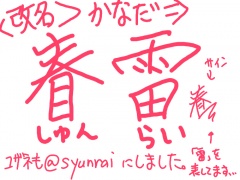 <改名>かなだ⇒
春雷
しゅんらい
サイン
↓
春
↑
「雷」を
表してます...
ユザネも@syunrai にしました。